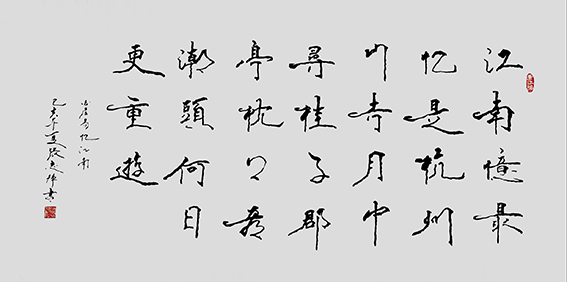 江南憶最
忆是杭州
山寺月中
尋桂子郡
亭枕上看
潮頭何日
更重遊
白居易忆江南
己亥年夏
書